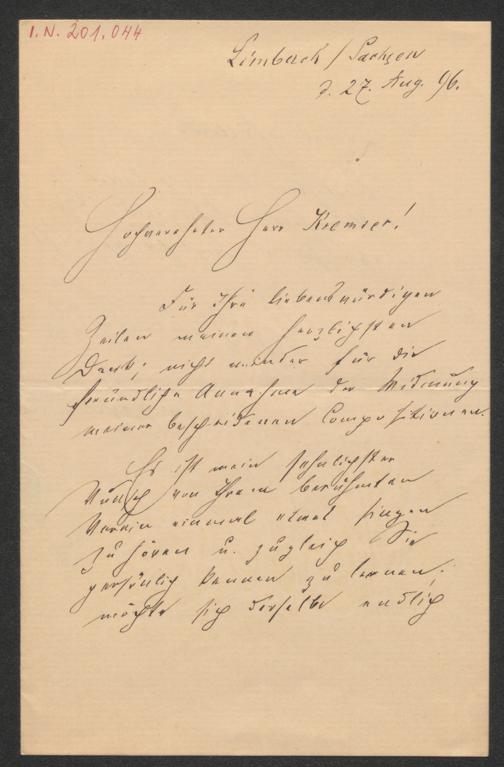 I.N. 201.044
Limbach / Sachsen
d. 27. Aug. 96.
Hochverehrter Herr Kremser!
Für Ihre liebenswürdigen
Zeilen meinen herzlichsten
Dank; nicht minder für die
freundliche Annahme der Widmung
meiner bescheidenen Compositionen.
Es ist mein sehnlichster
Wunsch von Ihrem berühmten
Verein einmal etwas singen
zu hören u. zugleich Sie
persönlich kennen zu lernen;
möchte sich derselbe endlich